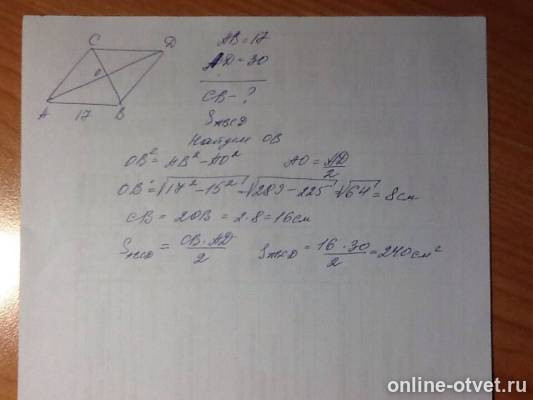 C D
O
A B
17
AB = 17
AD = 30
CB - ?
Найдем OB
OB² = AB² - AO² AO = AD/2
OB = √17² - 15² = √289 - 225 = √64 = 8см
CB = 2OB = 2·8 = 16см
= CB·AD/2 = 16·30/2 = 240см²
online-otvet.ru